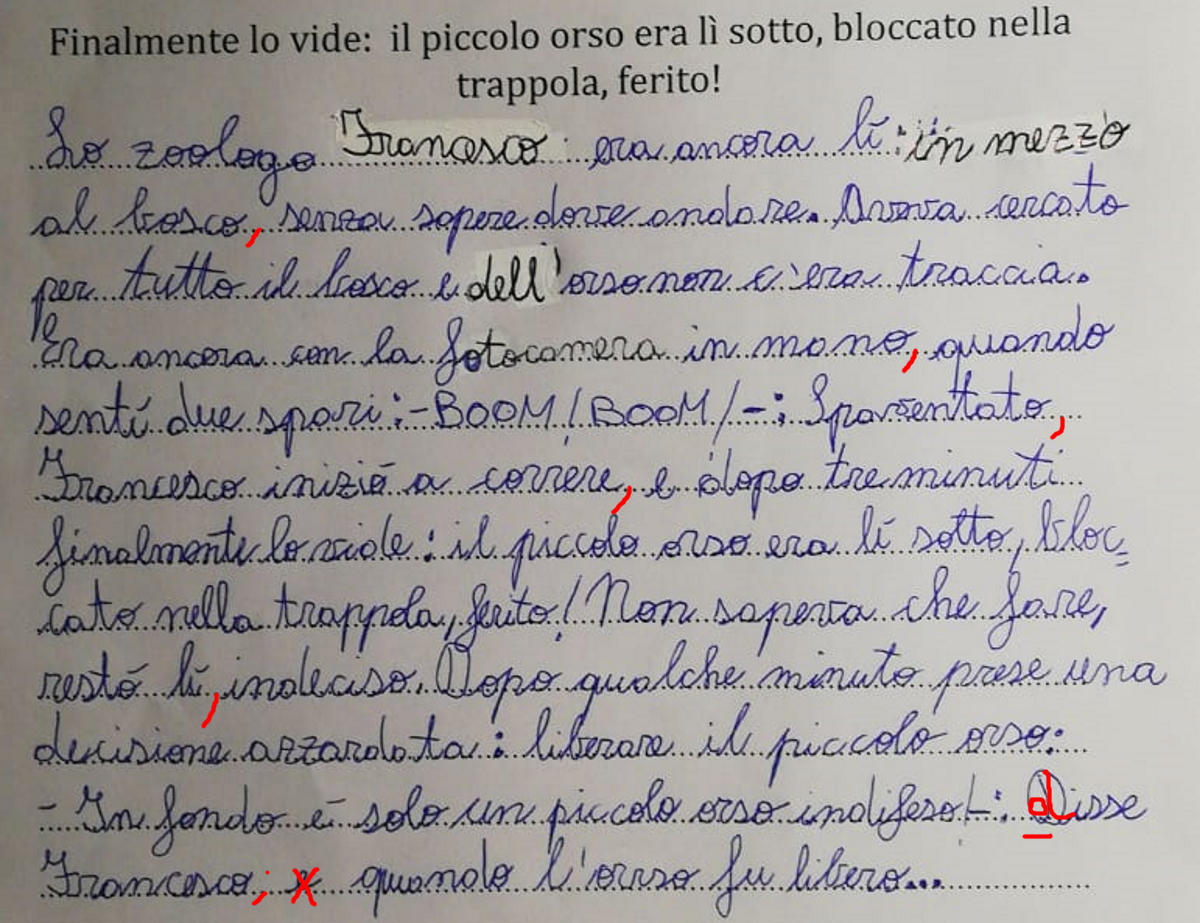 Finalmente lo vide: il piccolo orso era lì sotto, bloccato nella
trappola, ferito!
Lo zoologo Francesco era ancora lì: in mezzo
al bosco, senza sapere dove andare. Aveva cercato
per tutto il bosco e dell'orso non c'era traccia.
Era ancora con la fotocamera in mano, quando
sentì due spari:-BOOM! BOOM!-; Spaventato,
Francesco iniziò a correre, e dopo tre minuti
finalmente lo vide: il piccolo orso era lì sotto, bloc_
cato nella trappola, ferito! Non sapeva che fare,
restò lì, indeciso. Dopo qualche minuto prese una
decisione azzardata: liberare il piccolo orso:
- In fondo è solo un piccolo orso indifeso!-: disse
Francesco; e quando l'orso fu libero...